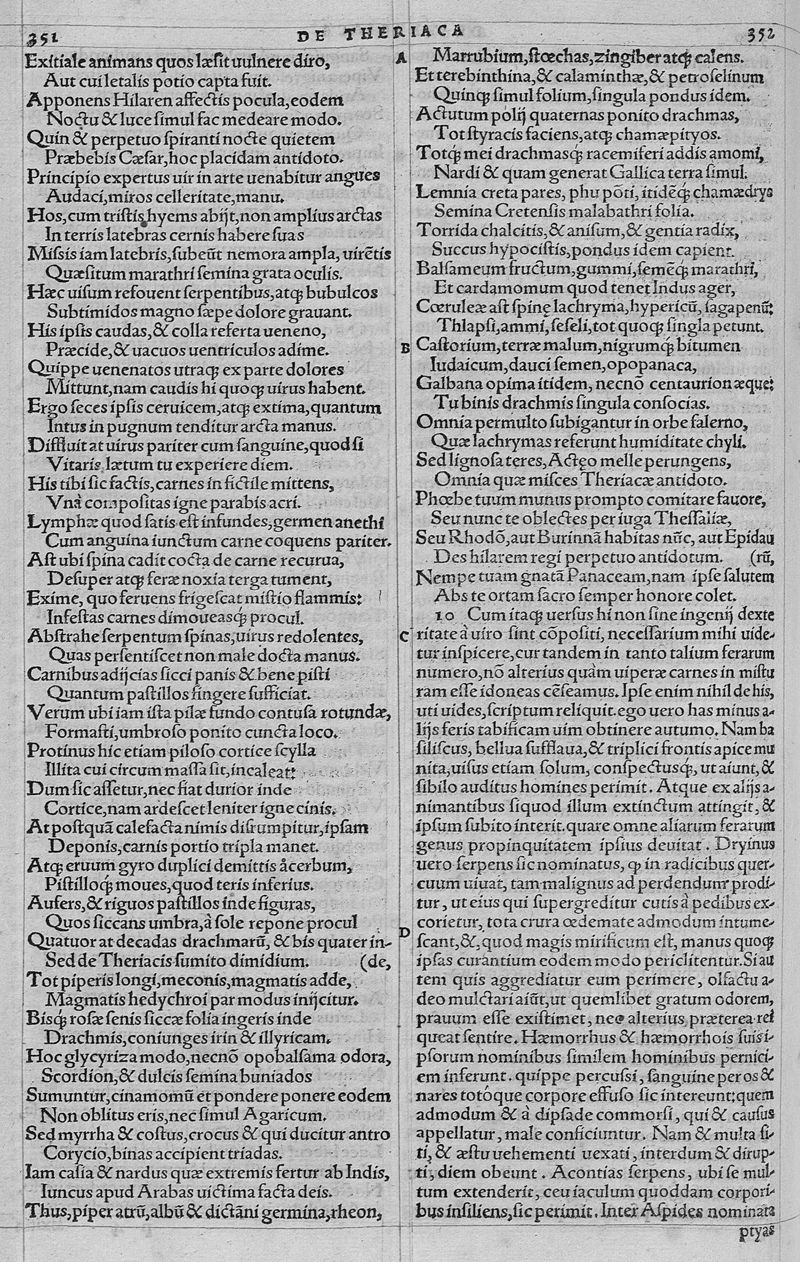 351
DE THERIACA
352
Exitiale animans quos læsit uulnere diro,
Aut cui letalis potio capta fuit.
Apponens Hilaren affectis pocula, eodem
Noctu & luce simul fac medeare modo.
Quin & perpetuo spiranti nocte quietem
Præbebis Cæsar, hoc placidam antidoto.
Principio expertus uir in arte uenabitur angues
Audaci, miros celleritate, manu.
Hos, cum tristis hyems abijt, non amplius arctas
In terris latebras cernis habere suas
Missis iam latebris, subeũt nemora ampla, uirẽtis
Quæsitum marathri semina grata oculis.
Hæc uisum refouent serpentibus, atq; bubulcos
Subtimidos magno sæpe dolore grauant.
His ipsis caudas, & colla referta ueneno,
Præcide, & uacuos uentriculos adime.
Quippe uenenatos utraq; ex parte dolores
Mittunt, nam caudis hi quoq; uirus habent.
Ergo seces ipsis ceruicem, atq; extima, quantum
Intus in pugnum tenditur arcta manus.
Diffluit at uirus pariter cum sanguine, quod si
Vitaris, lætum tu experiere diem.
His tibi sic factis, carnes in fictile mittens,
Vnà compositas igne parabis acri.
Lymphæ quod satis est infundes, germen anethi
Cum anguina iunctum carne coquens pariter.
Ast ubi spina cadit cocta de carne recurua,
Desuper atq; feræ noxia terga tument,
Exime, quo feruens frigescat mistio flammis:
Infestas carnes dimoueasq; procul.
Abstrahe serpentum spinas, uirus redolentes,
Quas persentiscet non male docta manus.
Carnibus adijcias sicci panis & bene pisti
Quantum pastillos fingere sufficiat.
Verum ubi iam ista pilæ fundo contusa rotundæ,
Formasti, umbroso ponito cuncta loco.
Protinus hic etiam piloso cortice scylla
Illita cui circum massa sit, incaleat:
Dum sic assetur, nec fiat durior inde
Cortice, nam ardescet leniter igne cinis.
At postquã calefacta nimis disrumpitur, ipsam
Deponis, carnis portio tripla manet.
Atq; eruum gyro duplici demittis åcerbum,
Pistilloq; moues, quod teris inferius.
Aufers, & riguos pastillos inde figuras,
Quos siccans umbra, à sole repone procul
Quatuor at decadas drachmarũ, & bis quater in-
Sed de Theriacis sumito dimidium. (de,
Tot piperis longi, meconis, magmatis adde,
Magmatis hedychroi par modus inijcitur.
Bisq; rosæ senis siccæ folia ingeris inde
Drachmis, coniunges irin & illyricam.
Hoc glycyriza modo, necnõ opobalsama odora,
Scordion, & dulcis semina buniados
Sumuntur, cinamomũ et pondere ponere eodem
Non oblitus eris, nec simul Agaricum.
Sed myrrha & costus, crocus & qui ducitur antro
Corycio, binas accipient triadas.
Iam casia & nardus quæ extremis fertur ab Indis,
Iuncus apud Arabas uictima facta deis.
Thus, piper atrũ, albũ & dictãni germina, rheon,
A
Marrubium, stœchas, zingiber atq; calens.
Et terebinthina, & calaminthæ, & petroselinum
Quinq; simul folium, singula pondus idem.
Actutum polij quaternas ponito drachmas,
Tot styracis faciens, atq; chamæpityos.
Totq; mei drachmasq; racemiferi addis amomi,
Nardi & quam generat Gallica terra simul.
Lemnia creta pares, phu põti, itidẽq; chamædrys
Semina Cretensis malabathri folia.
Torrida chalcitis, & anisum, & gentia radix,
Succus hypocistis, pondus idem capient.
Balsameum fructum, gummi, semẽq; marathri,
Et cardamomum quod tenet Indus ager,
Cœruleæ ast spinę lachryma, hypericũ, sagapenũ:
Thlapsi, ammi, seseli, tot quoq; singla petunt.
B
Castorium, terræ malum, nigrumq; bitumen
Iudaicum, dauci semen, opopanaca,
Galbana opima itidem, necnõ centaurion æque:
Tu binis drachmis singula consocias.
Omnia permulto subigantur in orbe falerno,
Quæ lachrymas referunt humiditate chyli.
Sed lignosa teres, Actęo melle perungens,
Omnia quæ misces Theriacæ antidoto.
Phœbe tuum munus prompto comitare fauore,
Seu nunc te oblectes per iuga Thessaliæ,
Seu Rhodõ, aut Burinnã habitas nũc, aut Epidau
Des hilarem regi perpetuo antidotum. (rũ,
Nempe tuam gnatã Panaceam, nam ipse salutem
Abs te ortam sacro semper honore colet.
10 Cum itaq; uersus hi non sine ingenij dexte
C
ritate à uiro sint cõpositi, necessarium mihi uide-
tur inspicere, cur tandem in tanto talium ferarum
numero, nõ alterius quàm uiperæ carnes in mistu
ram esse idoneas cẽseamus. Ipse enim nihil de his,
uti uides, scriptum reliquit. ego uero has minus a-
lijs feris tabificam uim obtinere autumo. Nam ba
siliscus, bellua sufflaua, & triplici frontis apice mu
nita, uisus etiam solum, conspectusq;, ut aiunt, &
sibilo auditus homines perimit. Atque ex alijs a-
nimantibus siquod illum extinctum attingit, &
ipsum subito interit. quare omne aliarum ferarum
genus propinquitatem ipsius deuitat. Dryinus
uero serpens sic nominatus, ꝙ in radicibus quer-
cuum uiuat, tam malignus ad perdendum prodi-
tur, ut eius qui supergreditur cutis à pedibus ex-
corietur, tota crura œdemate admodum intume-
D
scant, &, quod magis mirificum est, manus quoq;
ipsas curantium eodem modo periclitentur. Si au
tem quis aggrediatur eum perimere, olfactu a-
deo mulctari aiũt, ut quemlibet gratum odorem,
prauum esse existimet, nec alterius præterea rei
queat sentire. Hæmorrhus & hæmorrhois suis i-
psorum nominibus similem hominibus pernici-
em inferunt. quippe percussi, sanguine per os &
nares totóque corpore effuso sic intereunt: quem
admodum & à dipsade commorsi, qui & causus
appellatur, male conficiuntur. Nam & multa si-
ti, & æstu uehementi uexati, interdum & dirup-
ti, diem obeunt. Acontias serpens, ubi se mul-
tum extenderit, ceu iaculum quoddam corpori-
bus insiliens, sic perimit. Inter Aspides nominata
ptyas